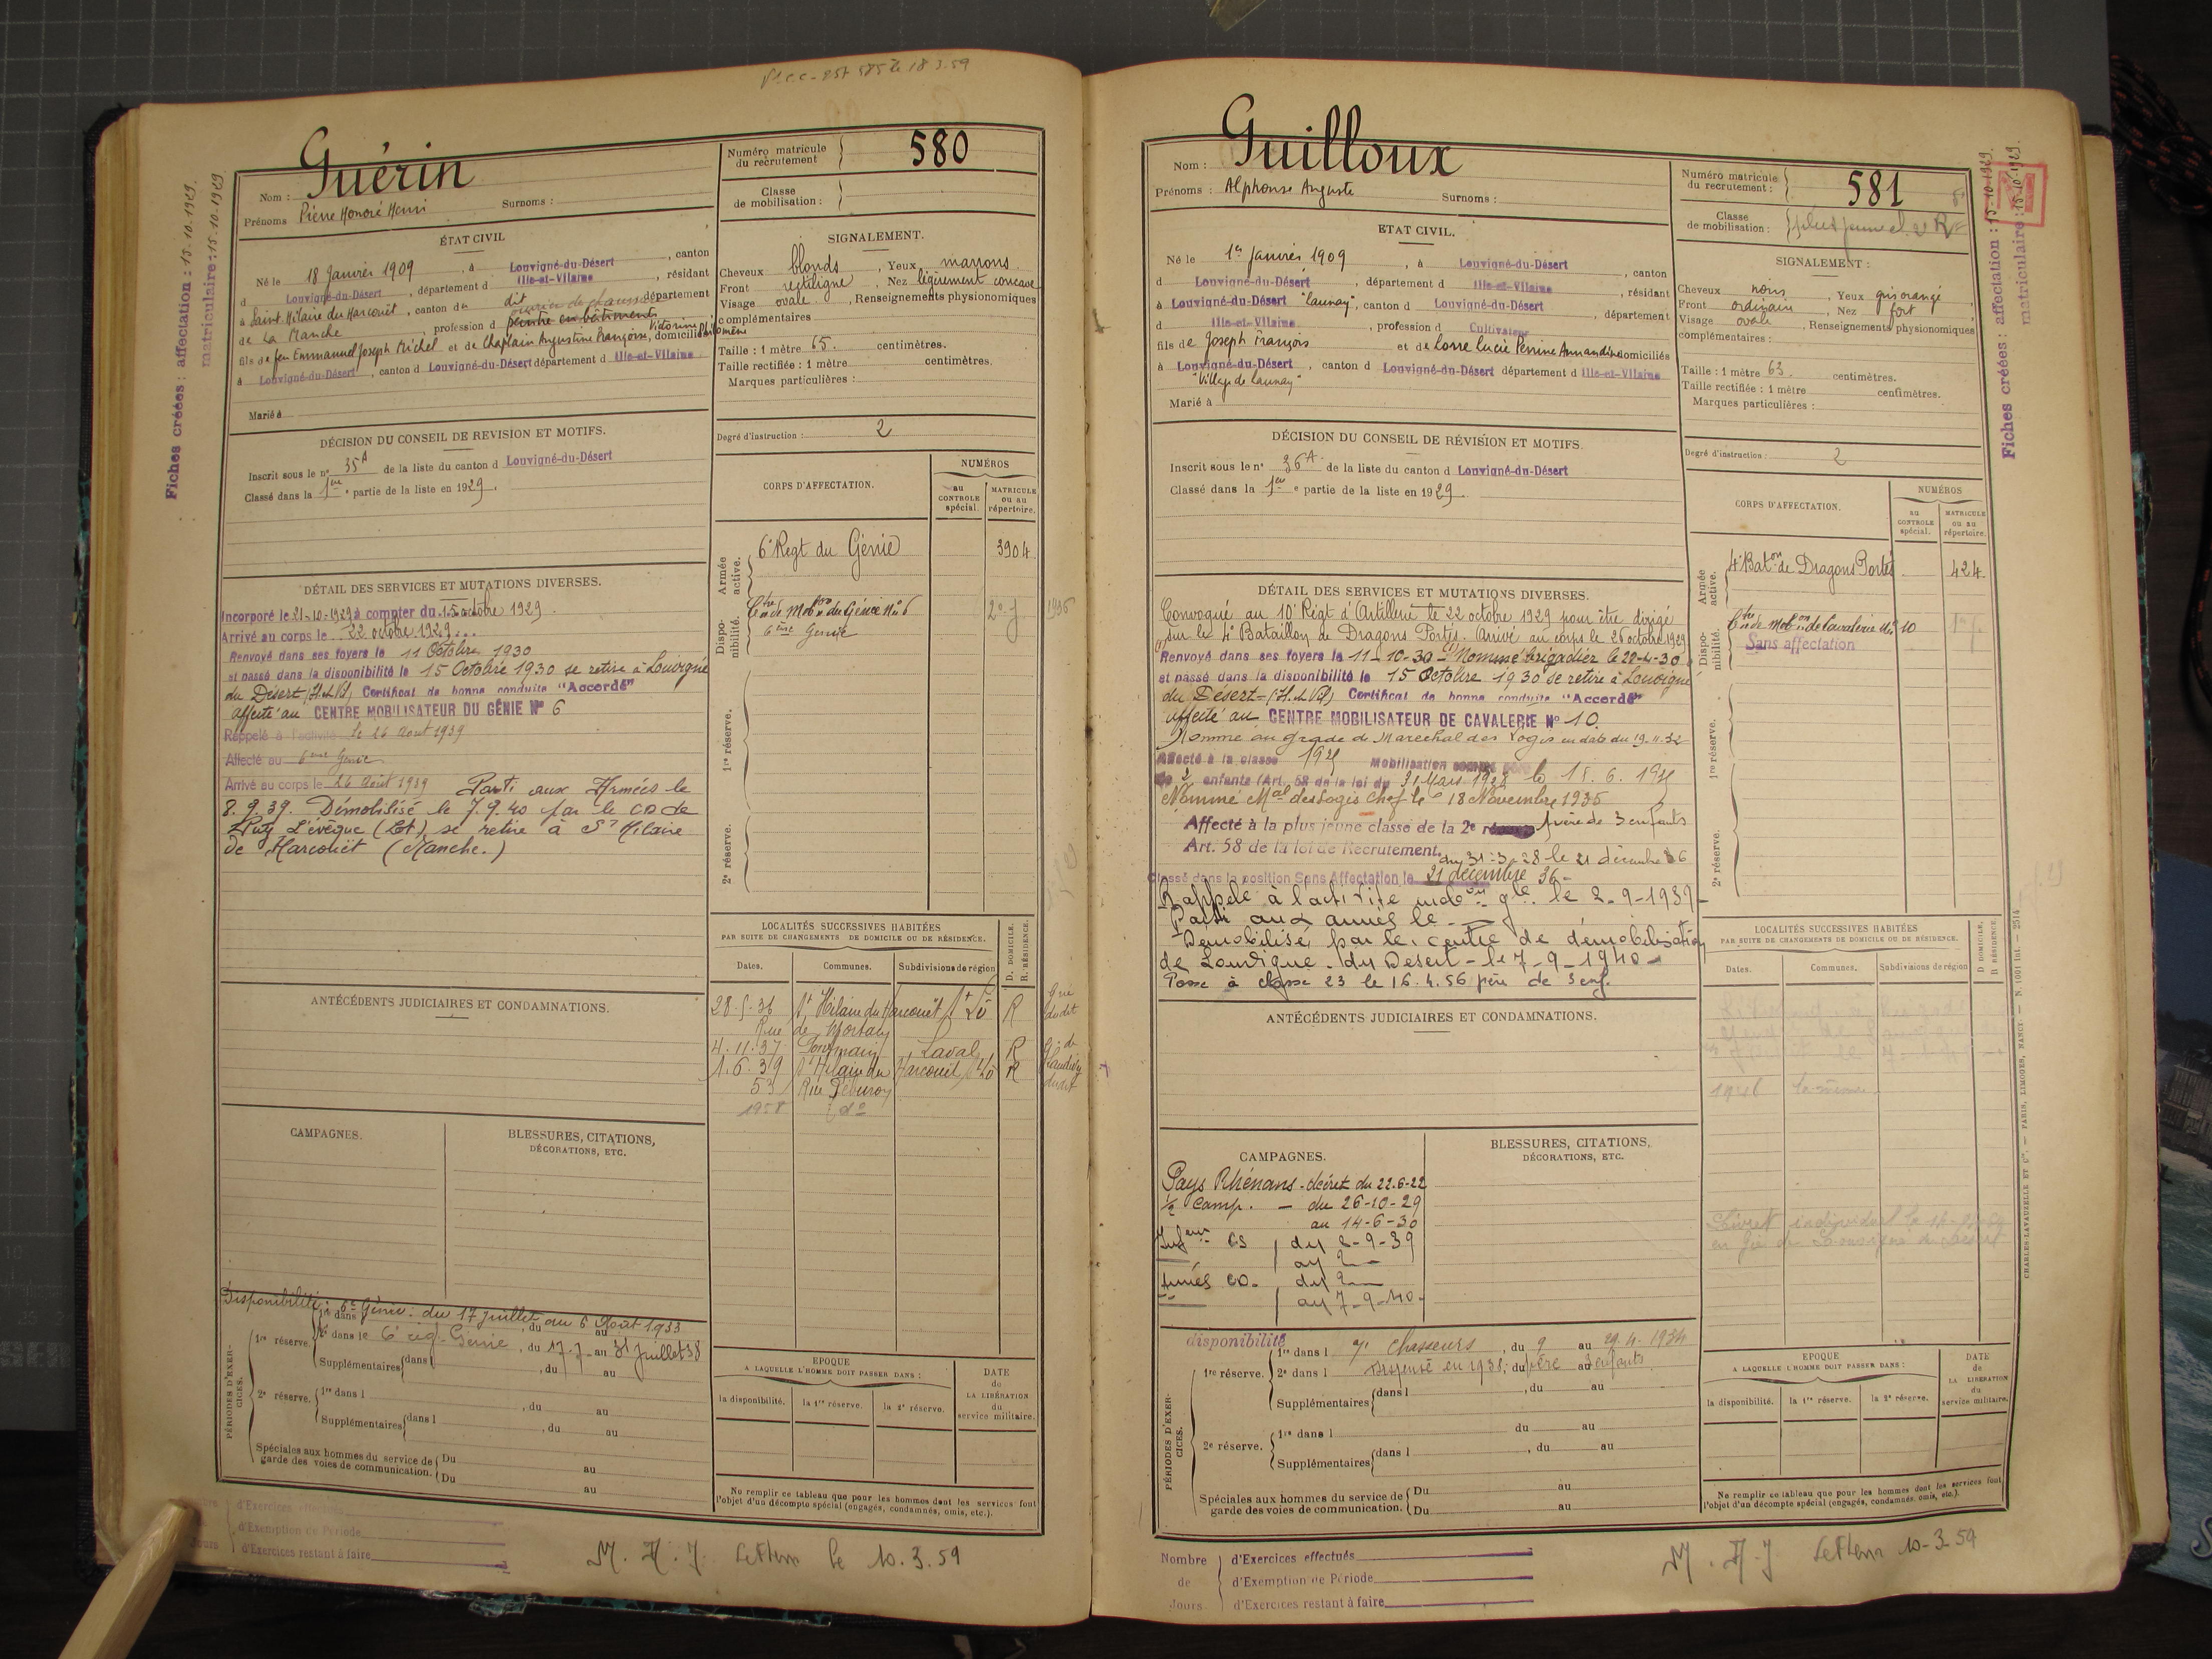 Guérin
Nom :
Prénoms Pierre Honoré Henri Surnoms :
Numéro matricule du recrutement 580
Classe de mobilisation :
Fiches créées : affectation : 15-10-1929.
matriculaire : 15-10-1929
ÉTAT CIVIL
Né le 18 Janvier 1909, à Louvigné-du-Désert, canton
d Louvigné-du-Désert, département d Ille-et-Vilaine, résidant
à Saint Hilaire du Harcouët, canton du dit département
de La Manche, profession d peintre en bâtiments
fils de feu Emmanuel Joseph Michel et de Chaplain Augustine Françoise, Victorine Philomène domiciliés
à Louvigné-du-Désert, canton d Louvigné-du-Désert département d Ille-et-Vilaine
Marié à
SIGNALEMENT.
Cheveux blonds, Yeux marrons
Front rectiligne, Nez légèrement concave
Visage ovale, Renseignements physionomiques
complémentaires
Taille : 1 mètre 65. centimètres.
Taille rectifiée : 1 mètre centimètres.
Marques particulières :
Degré d'instruction : 2
DÉCISION DU CONSEIL DE REVISION ET MOTIFS.
Inscrit sous le n° 35A de la liste du canton d Louvigné-du-Désert
Classé dans la 1ère partie de la liste en 1929.
CORPS D'AFFECTATION.
NUMÉROS
au CONTROLE spécial.
MATRICULE ou au répertoire.
Armée active.
6e Regt du Génie 3904
Disponibilité.
Ctre de Mobon du Génie N° 6
6ème Génie
1re réserve.
2e réserve.
DÉTAIL DES SERVICES ET MUTATIONS DIVERSES.
Incorporé le 21-10-1929 à compter du 15 octobre 1929.
Arrivé au corps le 22 octobre 1929...
Renvoyé dans ses foyers le 11 Octobre 1930
et passé dans la disponibilité le 15 Octobre 1930 se retire à Louvigné
du Désert (I.et.V), Certificat de bonne conduite "Accordé"
affecté au CENTRE MOBILISATEUR DU GÉNIE N° 6
Rappelé à l'activité le 26 Aout 1939
Affecté au 6eme Génie
Arrivé au corps le 26 Août 1939 Parti aux Armées le
8.9.39. Démobilisé le 7.9.40 par le CD de
Puy L'évêque (Lot) se retire à St Hilaire
de Harcouët (Manche.)
ANTÉCÉDENTS JUDICIAIRES ET CONDAMNATIONS.
LOCALITÉS SUCCESSIVES HABITÉES
PAR SUITE DE CHANGEMENTS DE DOMICILE OU DE RÉSIDENCE.
D. DOMICILE.
R. RÉSIDENCE.
Dates. Communes. Subdivisions de région
28-5-36 St Hilaire du Harcouët St Lô R
Rue de Mortain
4.11.37 Laval R
1.6.39 St Hilaire du Harcouët St Lô R
53 Rue
1958 do
CAMPAGNES.
BLESSURES, CITATIONS,
DÉCORATIONS, ETC.
PÉRIODES D'EXERCICES.
Disponibilité : 6e Génie : du 17 juillet au 6 Août 1933
1re réserve. 2e dans le 6e reg. Génie, du 17-7- au 31 Juillet 38
Supplémentaires dans l, du au
2e réserve. 1re dans l, du au
Supplémentaires dans l, du au
Spéciales aux hommes du service de garde des voies de communication. Du au
Du au
EPOQUE
A LAQUELLE L'HOMME DOIT PASSER DANS :
la disponibilité. la 1re réserve. la 2e réserve.
DATE de LA LIBÉRATION du service militaire.
Ne remplir ce tableau que pour les hommes dont les services font
l'objet d'un décompte spécial (engagés, condamnés, omis, etc.).
d'Exercices effectués
d'Exemption de Période
Jours d'Exercices restant à faire
le 10.3.59
Guilloux
Nom :
Prénoms : Alphonse Auguste Surnoms :
Numéro matricule du recrutement : 581
Classe de mobilisation :
Fiches créées : affectation : 15-10-1929.
matriculaire : 15-10-1929.
ETAT CIVIL.
Né le 1er Janvier 1909, à Louvigné-du-Désert, canton
d Louvigné-du-Désert, département d Ille-et-Vilaine, résidant
à Louvigné-du-Désert "Launay", canton d Louvigné-du-Désert département
d Ille-et-Vilaine, profession d Cultivateur
fils de Joseph François et de Lorre Lucie Perrine Armandine domiciliés
à Louvigné-du-Désert, canton d Louvigné-du-Désert département d Ille-et-Vilaine
"Village de Launay"
Marié à
SIGNALEMENT :
Cheveux noirs, Yeux gris orangé
Front ordinaire, Nez fort
Visage ovale, Renseignements physionomiques
complémentaires :
Taille : 1 mètre 63. centimètres.
Taille rectifiée : 1 mètre centimètres.
Marques particulières :
Degré d'instruction : 2
DÉCISION DU CONSEIL DE RÉVISION ET MOTIFS.
Inscrit sous le n° 36A. de la liste du canton d Louvigné-du-Désert
Classé dans la 1ère partie de la liste en 1929.
CORPS D'AFFECTATION.
NUMÉROS
au CONTROLE spécial.
MATRICULE ou au répertoire.
Armée active.
4e Baton de Dragons Portés 424
Disponibilité.
Ctre de Mobon de Cavalerie N° 10
Sans affectation
1re réserve.
2e réserve.
DÉTAIL DES SERVICES ET MUTATIONS DIVERSES.
Convoqué au 10e Régt d'Artillerie le 22 octobre 1929 pour être dirigé
sur le 4e Bataillon de Dragons Portés. Arrivé au corps le 26 octobre 1929
Renvoyé dans ses foyers le 11-10-30 - Nommé brigadier le 20-4-30
et passé dans la disponibilité le 15 Octobre 1930 se retire à Louvigné
du Désert-(I.et.V) Certificat de bonne conduite "Accordé"
affecté au CENTRE MOBILISATEUR DE CAVALERIE N° 10.
Nommé au grade de Marechal des Logis en date du 19.11.32
Affecté à la classe Mobilisation
de 2 enfants (Art. 58 de la loi du 31 Mars 1928
Nommé Mal des Logis Chef le 18 Novembre 1935
Affecté à la plus jeune classe de la 2e père de 3 enfants
Art. 58 de la loi de Recrutement. du 31-3-28 le 21 décembre 36
Classé dans la position Sans Affectation le 21 décembre 36-
Rappelé à l'activité mobon gle le 2-9-1939-
Parti aux armées le
Démobilisé par le centre de démobilisation
de Louvigné-du Desert-le 7-9-1940-
Passe à classe 23 le 16.4.56 père de 3 enf.
ANTÉCÉDENTS JUDICIAIRES ET CONDAMNATIONS.
LOCALITÉS SUCCESSIVES HABITÉES
PAR SUITE DE CHANGEMENTS DE DOMICILE OU DE RÉSIDENCE.
D DOMICILE.
R RÉSIDENCE
Dates. Communes. Subdivisions de région
CAMPAGNES.
Pays Rhénans - décret du 22-6-22
1/2 Camp. - du 26-10-29
au 14-6-30
CS du 2-9-39
au
CD. du
au 7-9-40-
BLESSURES, CITATIONS,
DÉCORATIONS, ETC.
PÉRIODES D'EXERCICES.
disponibilité
1re réserve. 1re dans l 7e Chasseurs, du 9 au 29-4-1934
2e dans l Dispensé en 1938, du père au 3 enfants.
Supplémentaires dans l, du au
2e réserve. 1re dans l du au
Supplémentaires dans l, du au
Spéciales aux hommes du service de garde des voies de communication. Du au
Du au
EPOQUE
A LAQUELLE L'HOMME DOIT PASSER DANS :
la disponibilité. la 1re réserve. la 2e réserve.
DATE de LA LIBÉRATION du service militaire.
Ne remplir ce tableau que pour les hommes dont les services font
l'objet d'un décompte spécial (engagés, condamnés, omis, etc.).
CHARLES-LAVAUZELLE ET Cie. — PARIS, LIMOGES, NANCY.
Nombre de Jours
d'Exercices effectués
d'Exemption de Période
d'Exercices restant à faire
10-3-59